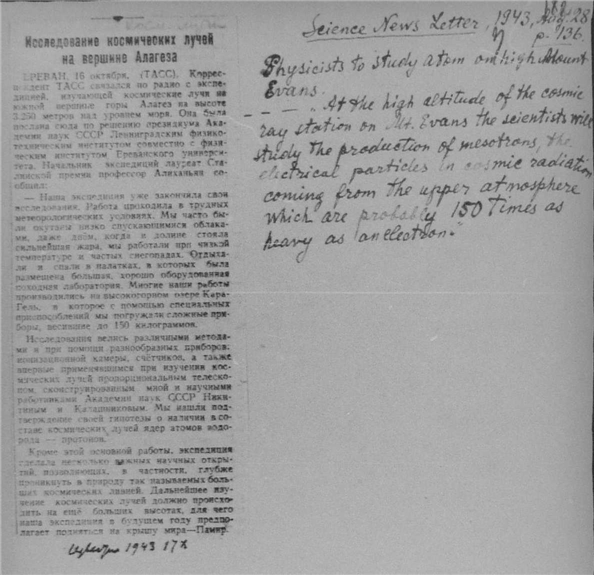 Исследование космических лучей
на вершине Алагеза
ЕРЕВАН, 16 октября. (ТАСС). Коррес-
пондент ТАСС связался по радио с экспе-
дицией, изучающей космические лучи на
южной вершине горы Алагез на высоте
3.250 метров над уровнем моря. Она была
послана сюда по решению президиума Ака-
демии наук СССР Ленинградским физико-
техническим институтом совместно с физи-
ческим институтом Ереванского универси-
тета. Начальник экспедиции лауреат Ста-
линской премии профессор Алиханьян со-
общил:
— Наша экспедиция уже закончила свои
исследования. Работа проходила в трудных
метеорологических условиях. Мы часто бы-
ли окутаны низко спускающимися облака-
ми, даже днём, когда в долине стояла
сильнейшая жара, мы работали при низкой
температуре и частых снегопадах. Отдыха-
ли и спали в палатках, в которых была
размещена большая, хорошо оборудованная
походная лаборатория. Многие наши работы
производились на высокогорном озере Кара-
Гель, в которое с помощью специальных
приспособлений мы погружали сложные при-
боры, весившие до 150 килограммов.
Исследования велись различными метода-
ми и при помощи разнообразных приборов:
ионизационной камеры, счётчиков, а также
впервые применявшимся при изучении кос-
мических лучей пропорциональным телеско-
пом, сконструированным мной и научными
работниками Академии наук СССР Ники-
тиным и Калашниковым. Мы нашли под-
тверждение своей гипотезы о наличии в со-
ставе космических лучей ядер атомов водо-
рода — протонов.
Кроме этой основной работы, экспедиция
сделала несколько важных научных откры-
тий, позволяющих, в частности, глубже
проникнуть в природу так называемых боль-
ших космических ливней. Дальнейшее изу-
чение космических лучей должно происхо-
дить на ещё больших высотах, для чего
наша экспедиция в будущем году предпо-
лагает подняться на крышу мира—Памир.
1943 17X
Science News Letter, 1943, Aug. 28
p. 136.
Physicists to study atom on high Mount
Evans.
— — „At the high altitude of the cosmic
ray station on Mt. Evans the scientists will
study the production of mesotrons, the
electrical particles in cosmic radiation
coming from the upper atmosphere
which are probably 150 times as
heavy as an electron."